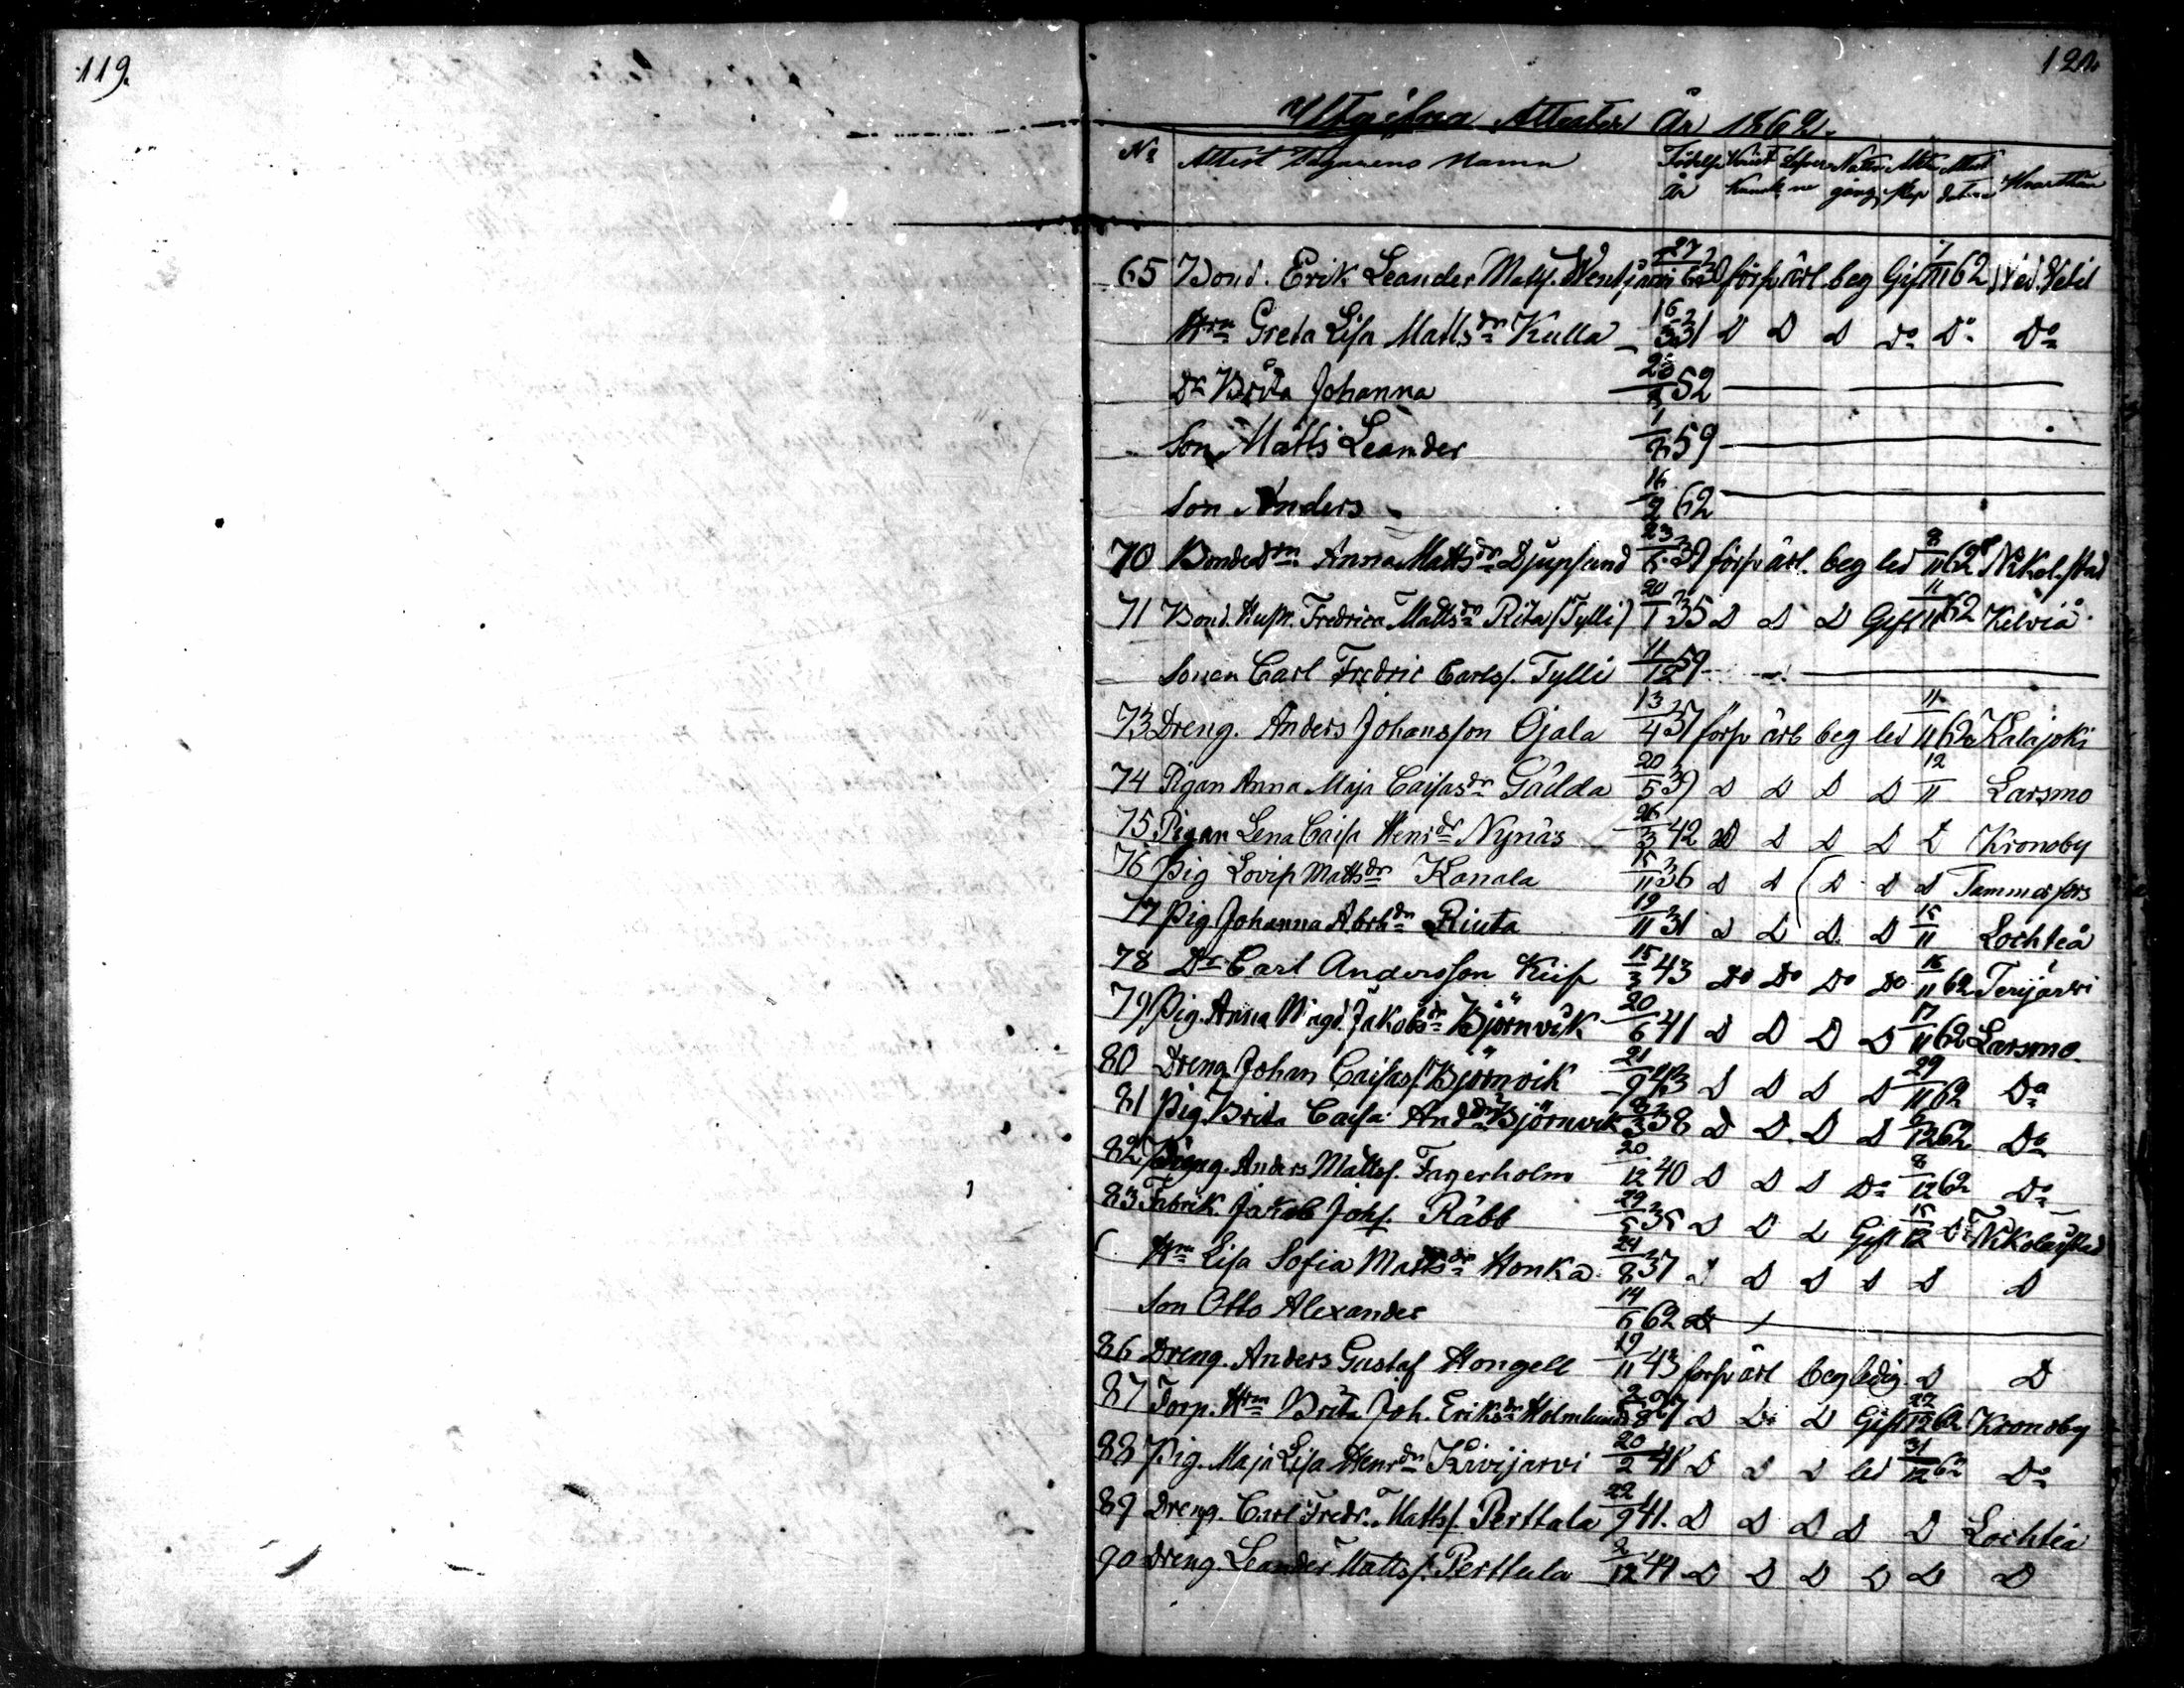 119.
120
Utgifna Attester År 1862.
No Attest Tagarens Namn Födelse år Christ. Kunsk. Lefverne Nattv. gång Attest datum Hvarthän
65 Bond. Erik Leander Matss. Wentjärvi 27 30 försv. ärl. beg Gift 7/11 62 Ned. Vetil
Hru Greta Lisa Mattsdr Kulla 16/3 31 D D D Do Do Do
Dr Brita Johanna 52
Son Matts Leander 59
Son Anders 16/2 62
70 Bondedtr Anna Mattsdr Djupsund 23/6 39 försv ärl. beg led 8/11 62 Nikol.stad
71 Bond. Hustr. Fredrica Mattsdr Rita (Tylli) 20/1 35 D D D Gift 11/11 62 Kelviå
Sonen Carl Fredric Carlss. Tylli 11/12 59
73 Dreng. Anders Johansson Ojala 13/4 37 försv ärl beg led 11/11 62 Kalajoki
74 Pigan Anna Maja Caisasdr Gädda 20/5 39 D D D D 12/11 Larsmo
75 Pigan Lena Caisa Henrdr Nynäs 26/3 42 D D D D D Kronoby
76 Pig Lovisa Mattsdr Kanala 15/11 36 D D D D D Tammerfors
77 Pig. Johanna Abrhdr Riuta 19/11 31 D D D D 15/11 Lochteå
78 Dr Carl Andersson Kiip 15/3 43 Do Do Do Do 16/11 62 Terijärvi
79 Pig. Anna Magd. Jakobsdr Björnvik 20/6 41 D D D D 17/11 62 Larsmo
80 Dreng. Johan Caisass. Björnvik 21/9 43 D D D D 29/11 62 Do
81 Pig. Brita Caisa Anddr Björnvik 38 D D D D /12 62 Do
82 Dreng. Anders Mattss. Fagerholm 20/12 40 D D D Do 8/12 62 Do
83 Fabrik. Jakob Johss. Räbb 29/5 35 D D D Gift 15/12 D Nikolaistad
Hru Lisa Sofia Mattsdr Honka 24/8 37 D D D D D D
Son Otto Alexander 14/6 62
86 Dreng. Anders Gustaf Hongell 19/11 43 försv ärl beg ledig D D
87 Torp. Hru Brita Joh. Eriksdr Holmlund 2/8 27 D D D Gift 22/12 62 Kronoby
88 Pig. Maja Lisa Henrdr Kivijärvi 20/2 41 D D D led 31/12 62 Do
89 Dreng. Carl Fredr. Mattss. Perttala 22/9 41. D D D D D Lochteå
90 Dreng. Leander Mattss. Perttula 2/12 44 D D D D D D